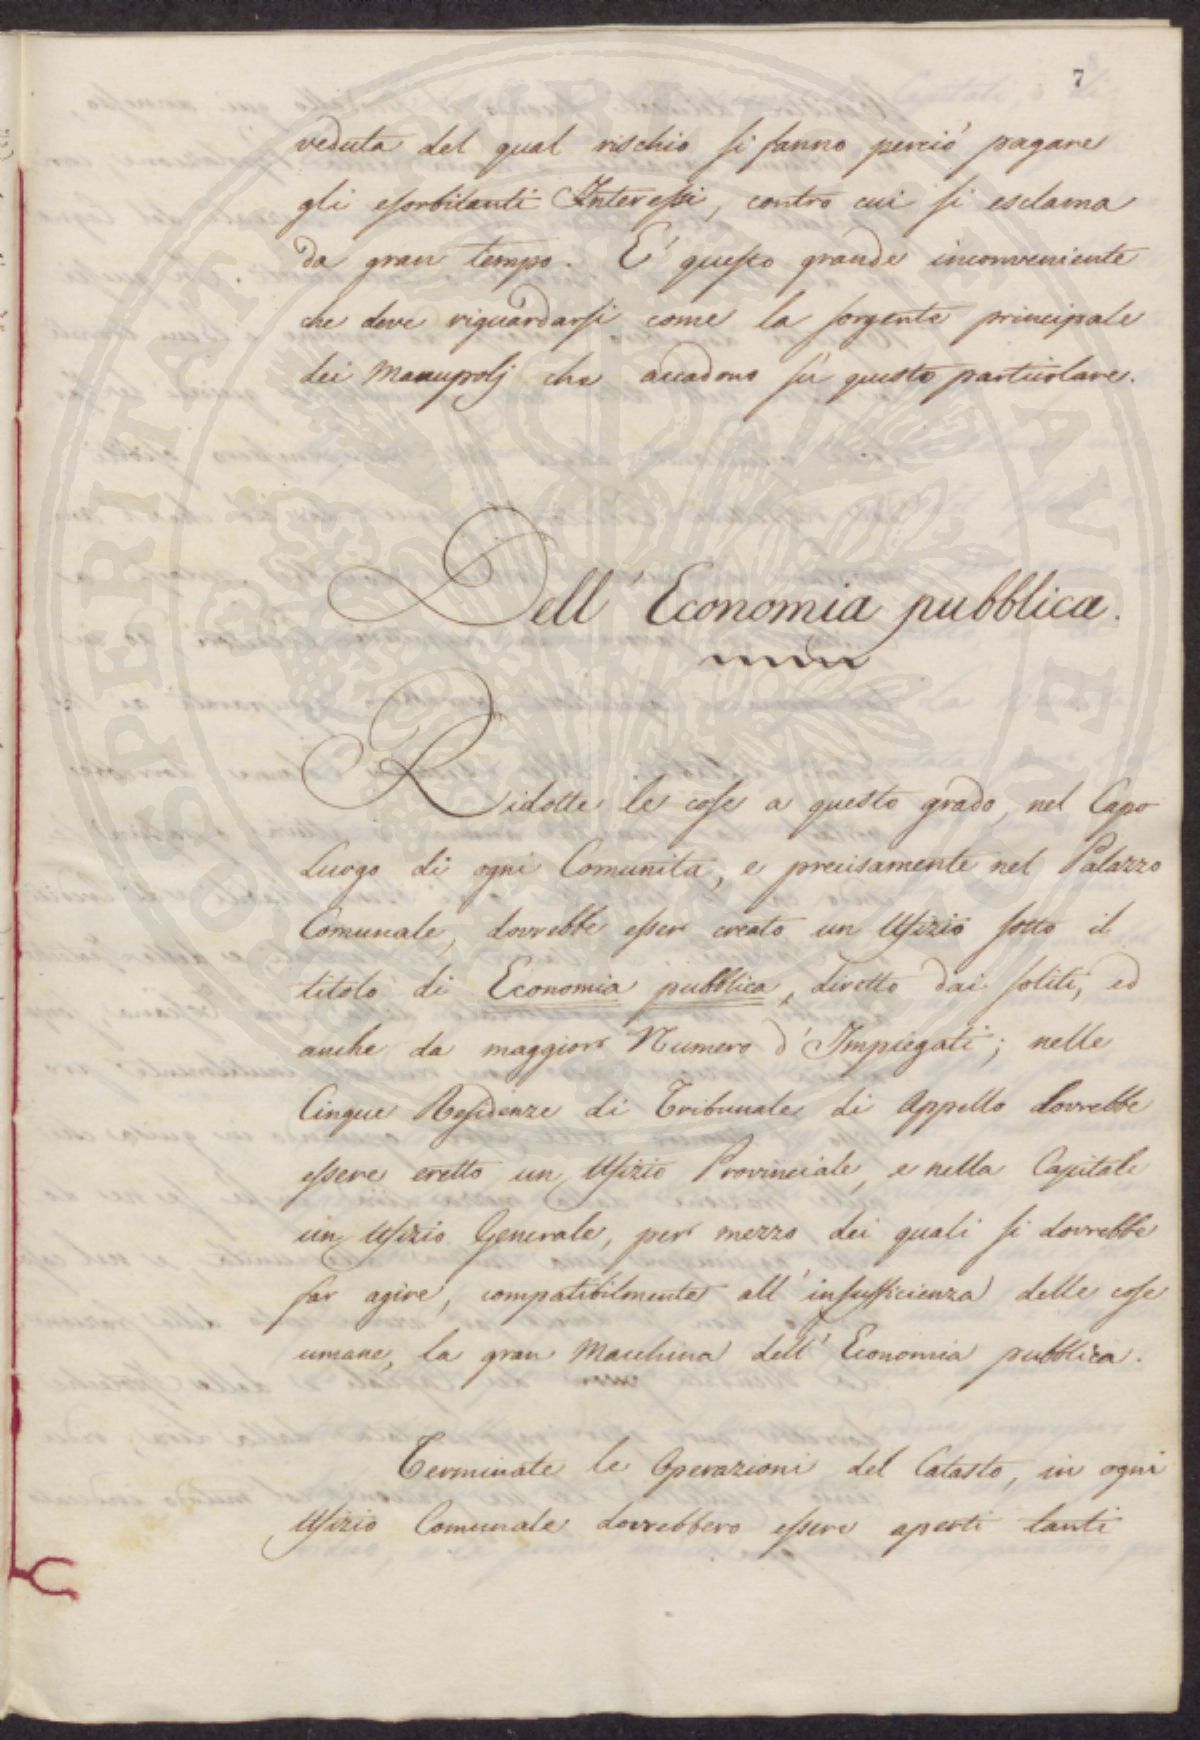 7
veduta del qual rischio si fanno perciò pagare
gli esorbitanti Interessi, contro cui si esclama
da gran tempo. E' questo grande inconveniente
che deve riguardarsi come la sorgente principale
dei Manupolj che accadono su questo particolare.
Dell' Economia pubblica.
Ridotte le cose a questo grado, nel Capo
Luogo di ogni Comunità, e precisamente nel Palazzo
Comunale, dovrebbe esser creato un Ufizio sotto il
titolo di Economia pubblica, diretto dai soliti, ed
anche da maggior Numero d'Impiegati; nelle
Cinque Residenze di Tribunale di Appello dovrebbe
essere eretto un Ufizio Provinciale, e nella Capitale
un Ufizio Generale, per mezzo dei quali si dovrebbe
far agire, compatibilmente all' insufficienza delle cose
umane, la gran Macchina dell' Economia pubblica.
Terminate le Operazioni del Catasto, in ogni
Ufizio Comunale dovrebbero essere aperti tanti